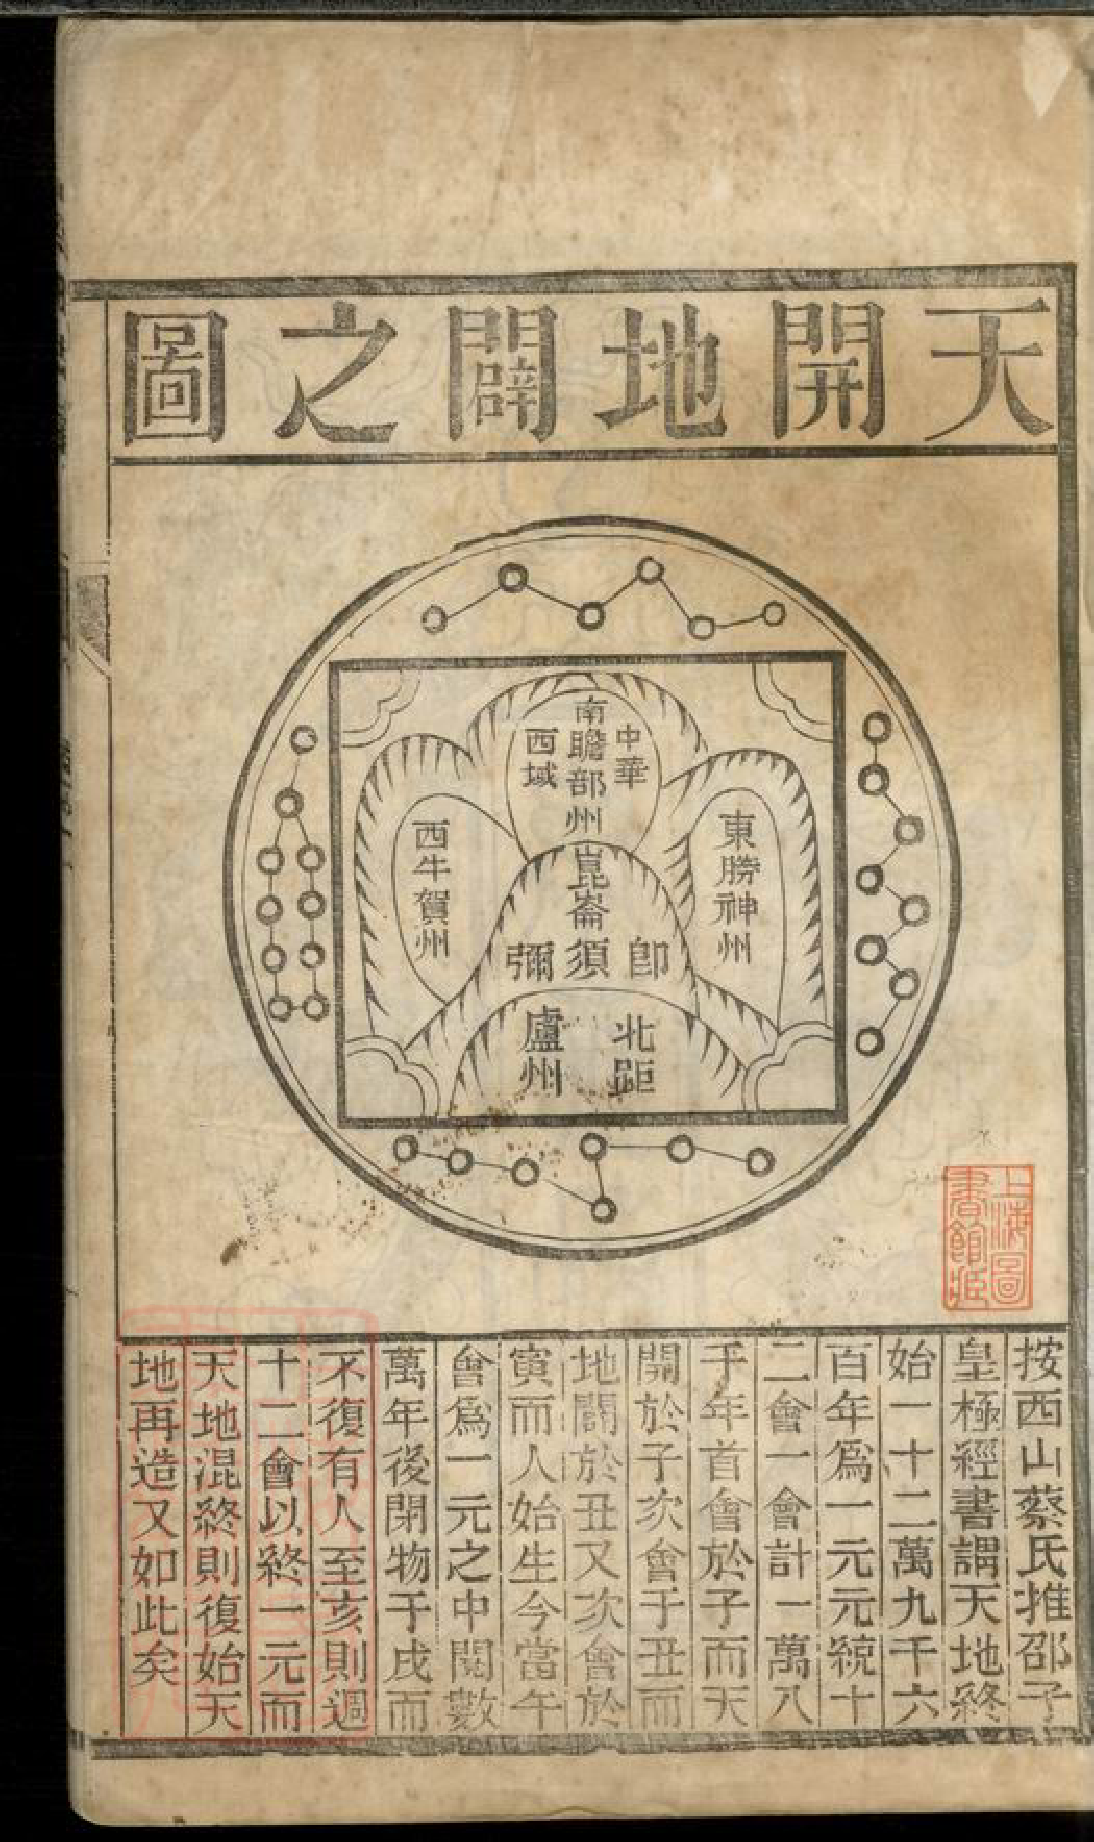 天開地闢之圖
中華
南贍部州
西域
東勝神州
西牛賀州
崑崙
即須彌
北距
盧州
上海圖
書館藏
按西山蔡氏推邵子
皇極經書謂天地終
始一十二萬九千六
百年爲一元元統十
二會一會計一萬八
千年首會於子而天
開於子次會于丑而
地闢於丑又次會於
寅而人始生今當午
會爲一元之中閱數
萬年後閉物于戌而
不復有人至亥則週
十二會以終一元而
天地混終則復始天
地再造又如此矣